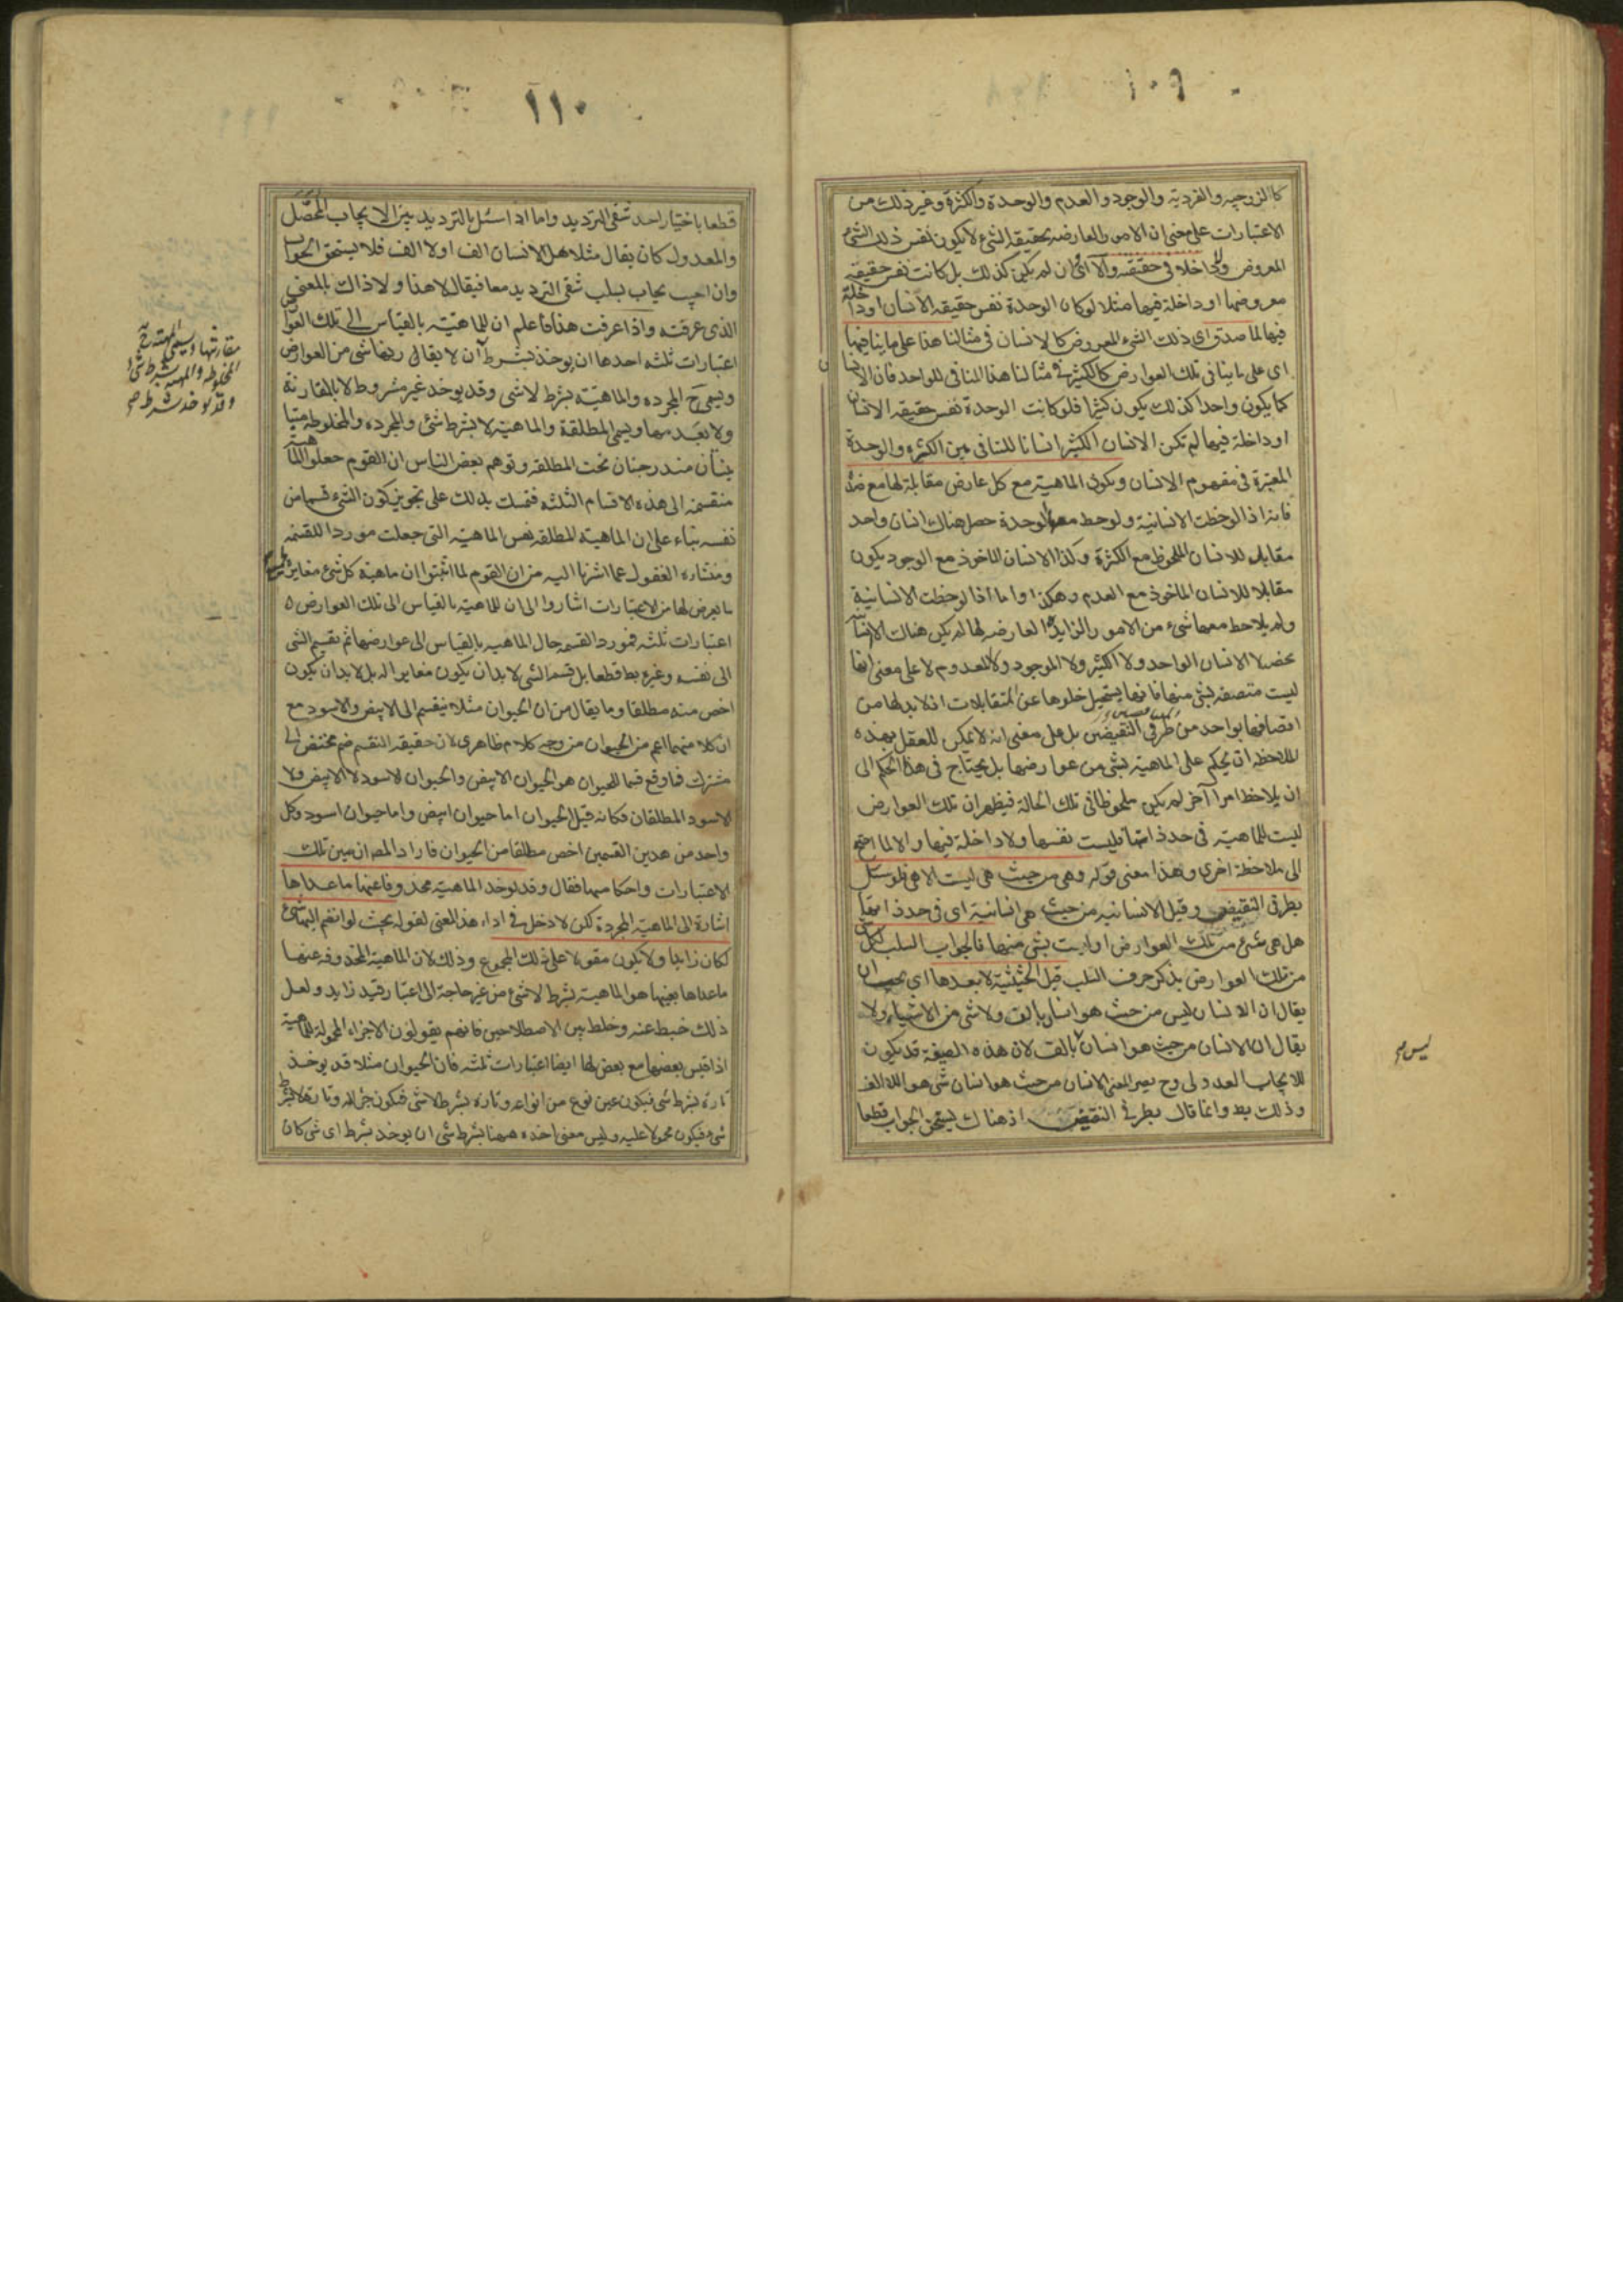 ١٠٩
كالزوجيه والفرديه والوجود والعدم والوحدة والكثرة وغير ذلك من
الاعتبارات على معنى ان الامور العارضه لحقيقه الشئ لا يكون نفس ذلك الشئ
المعروض ولا داخلا فى حقيقته والا اى ان لم يكن كذلك بل كانت نفس حقيقه
معروضها او داخلة فيها مثلا لو كان الوحدة نفس حقيقه الانسان او داخلة
فيها لما صدق اى ذلك الشئ المعروض كالانسان فى مثالنا هذا على ما ينافيها
اى على ما ينافى تلك العوارض كالكثير فى مثالنا هذا المنافى للواحد فان الانسان
كما يكون واحدا كذلك يكون كثيرا فلو كانت الوحدة نفس حقيقه الانسان
او داخلة فيها لم تكن الانسان الكثير انسانا للتنافى بين الكثرة والوحدة
المعتبرة فى مفهوم الانسان وتكون الماهية مع كل عارض مقابلة لها مع ضده
فانه اذا لوحظت الانسانية ولوحظ معها الوحدة حصل هناك انسان واحد
مقابل للانسان الملحوظ مع الكثرة وكذا الانسان الماخوذ مع الوجود يكون
مقابلا للانسان الماخوذ مع العدم وهكذا واما اذا لوحظت الانسانية
ولم يلاحظ معها شئ من الامور الزايدة العارضه لها لم يكن هناك الا الانسانية
محضا لا الانسان الواحد ولا الكثير ولا الموجود ولا المعدوم لا على معنى انها
ليست متصفه بشئ منها فانها يستحيل خلوها عن المتقابلات اذ لا بد لها من
اتصافها بواحد من طرفى النقيضين بل على معنى انه لا يمكن للعقل بهذه
الملاحظه ان يحكم على الماهيه بشئ من عوارضها بل يحتاج فى هذا الحكم الى
ان يلاحظ امرا آخر لم يكن ملحوظا فى تلك الحالة فيظهر ان تلك العوارض
ليست للماهيه فى حد ذاتها وليست نفسها ولا داخلة فيها والا لما احتيج
الى ملاحظة اخرى وهذا معنى قوله وهى من حيث هى ليست الا هى فلو سئل
بطرفى النقيضين وقيل الانسانيه من حيث هى انسانية اى فى حد ذاتها
هل هى شئ من تلك العوارض او ليست بشئ منها فالجواب السلب لكل
من تلك العوارض بذكر حرف السلب قبل الحيثية لا بعدها اى يجب ان
يقال ان الانسان ليس من حيث هو انسان بالف ولا شئ من الاشياء ولا
يقال ان الانسان من حيث هو انسان لا بالف لان هذه الصيغة قد يكون
للايجاب العدولى وح يصير المعنى الانسان من حيث هو انسان شئ هو اللا الف
وذلك بط وانما قال بطرفى النقيضين اذ هناك يستحق الجواب قطعا
ليس م
١١٠
قطعا باختيار احد شقى الترديد واما اذا سئل بالترديد بين الايجاب المحصل
والمعدول كان يقال مثلا هل الانسان الف او لا الف فلا يستحق الجواب
وان اجيب يجاب بسلب شقى الترديد معا فيقال لا هذا ولا ذاك بالمعنى
الذى عرفته واذا عرفت هذا فاعلم ان للماهيته بالقياس الى تلك العوارض
اعتبارات ثلثه احدها ان يوخذ بشرط ان لا يقارنها شئ من العوارض
ويسمى ح المجرده والماهيته بشرط لا شئ وقد يوخذ غير مشروط لا بالمقارنة
ولا بعدمها ويسمى المطلقة والماهيته لا بشرط شئ والمجرده والمخلوطه
متباينان مندرجتان تحت المطلقه وتوهم بعض الناس ان القوم جعلوا الماهية
منقسمة الى هذه الاقسام الثلثه فتمسك بذلك على تجويز كون الشئ قسما من
نفسه بناء على ان الماهية المطلقه نفس الماهيه التى جعلت موردا للقسمه
ومنشاءه الغفول عما اشرنا اليه من ان القوم لما اثبتوا ان ماهية كل شئ مغايرة
ما يعرض لها من الاعتبارات اشاروا الى ان للماهيه بالقياس الى تلك العوارض
اعتبارات ثلثه فمورد القسمه حال الماهيه بالقياس الى عوارضها ثم تقسيم الشئ
الى نفسه وغيره بط قطعا بل قسم الشئ لا بد ان يكون مغايرا له بل لا بد ان يكون
اخص منه مطلقا وما يقال من ان الحيوان مثلا ينقسم الى الابيض والاسود مع
ان كلا منهما اعم من الحيوان من وجه كلام ظاهرى لان حقيقه التقسيم ضم مختص الى
مشترك فما وقع قسما للحيوان هو الحيوان الابيض والحيوان الاسود لا الابيض ولا
الاسود المطلقان فكانه قيل الحيوان اما حيوان ابيض واما حيوان اسود وكل
واحد من هذين القسمين اخص مطلقا من الحيوان فاراد المص ان يبين تلك
الاعتبارات واحكامها فقال وقد يوخذ الماهيه محذوفا عنها ما عداها
اشارة الى الماهية المجردة لكن لا دخل فى اداء هذا المعنى لقوله بحيث لو انضم اليها شئ
لكان زايدا ولا يكون مقولا على ذلك المجموع وذلك لان الماهية المحذوفه عنها
ما عداها بعينها هو الماهية بشرط لا شئ من غير حاجة الى اعتبار قيد زايد ولعل
ذلك خبط عنه وخلط بين الاصطلاحين فانهم يقولون الاجزاء المحمولة للماهية
اذا قيس بعضها مع بعض لها ايضا اعتبارات ثلثه فان الحيوان مثلا قد يوخذ
تارة بشرط شئ فيكون عين نوع من انواعه وتارة بشرط لا شئ فيكون جزأ له وتارة لا بشرط
شئ فيكون محمولا عليه وليس معنى اخذه ههنا بشرط شئ ان يوخذ بشرط اى شئ كان
مقارنتها ويسمى الماهية ح
المخلوطه والماهية بشرط شئ
وقد يوخذ بشرط م